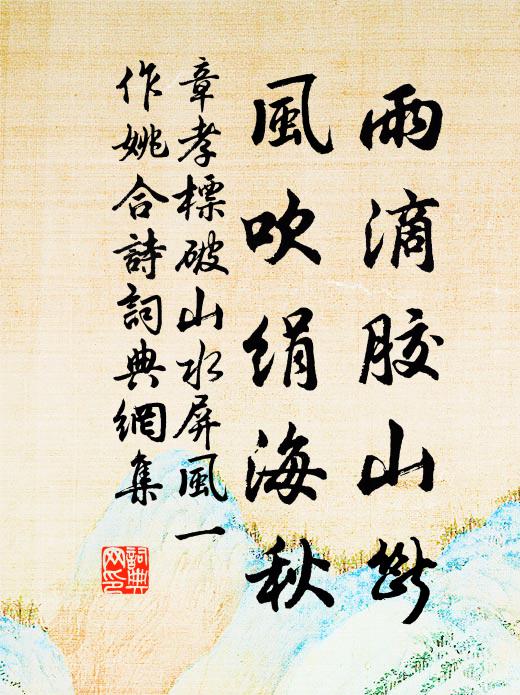 雨滴胶山断
風吹絹海秋
章孝標破山水屏風一
作姚合詩詞典網集
詞典
网印